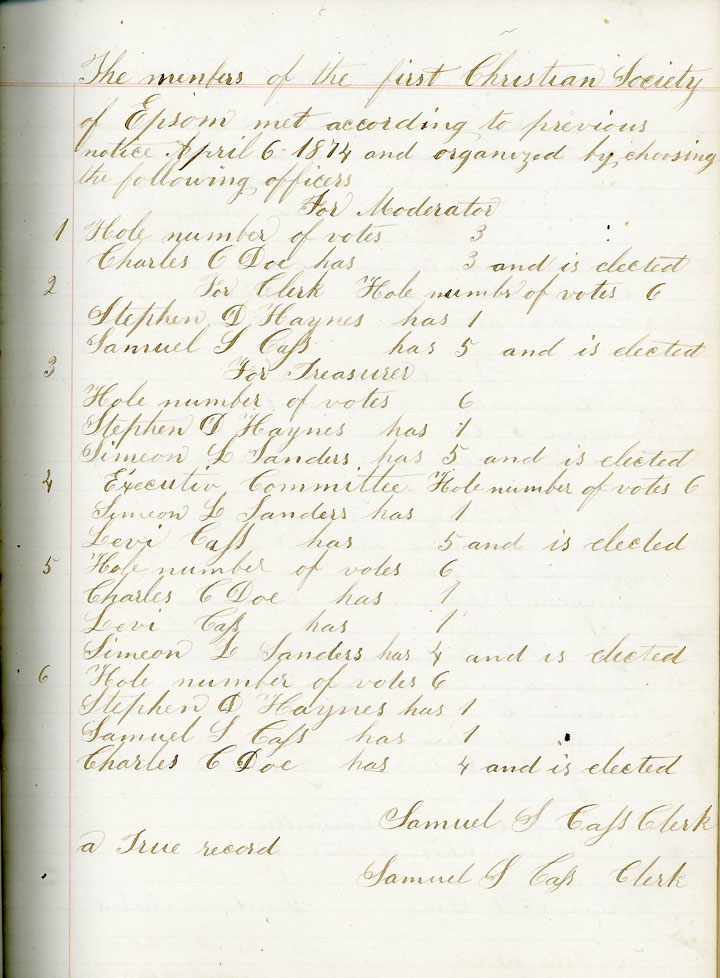 The menbers of the first Christian Society
of Epsom met according to previous
notice April 6 1874 and organized by choosing
the following officers
For Moderator
1 Hole number of votes 3
Charles C Doe has 3 and is elected
2 For Clerk Hole number of votes 6
Stephen D Haynes has 1
Samuel S Cass has 5 and is elected
3 For Treasurer
Hole number of votes 6
Stephen D Haynes has 1
Simeon L Sanders has 5 and is elected
4 Executiv Committee Hole number of votes 6
Simeon L Sanders has 1
Levi Cass has 5 and is elected
5 Hole number of votes 6
Charles C Doe has 1
Levi Cass has 1
Simeon L Sanders has 4 and is elected
6 Hole number of votes 6
Stephen D Haynes has 1
Samuel S Cass has 1
Charles C Doe has 4 and is elected
Samuel S Cass Clerk
a True record
Samuel S Cass Clerk